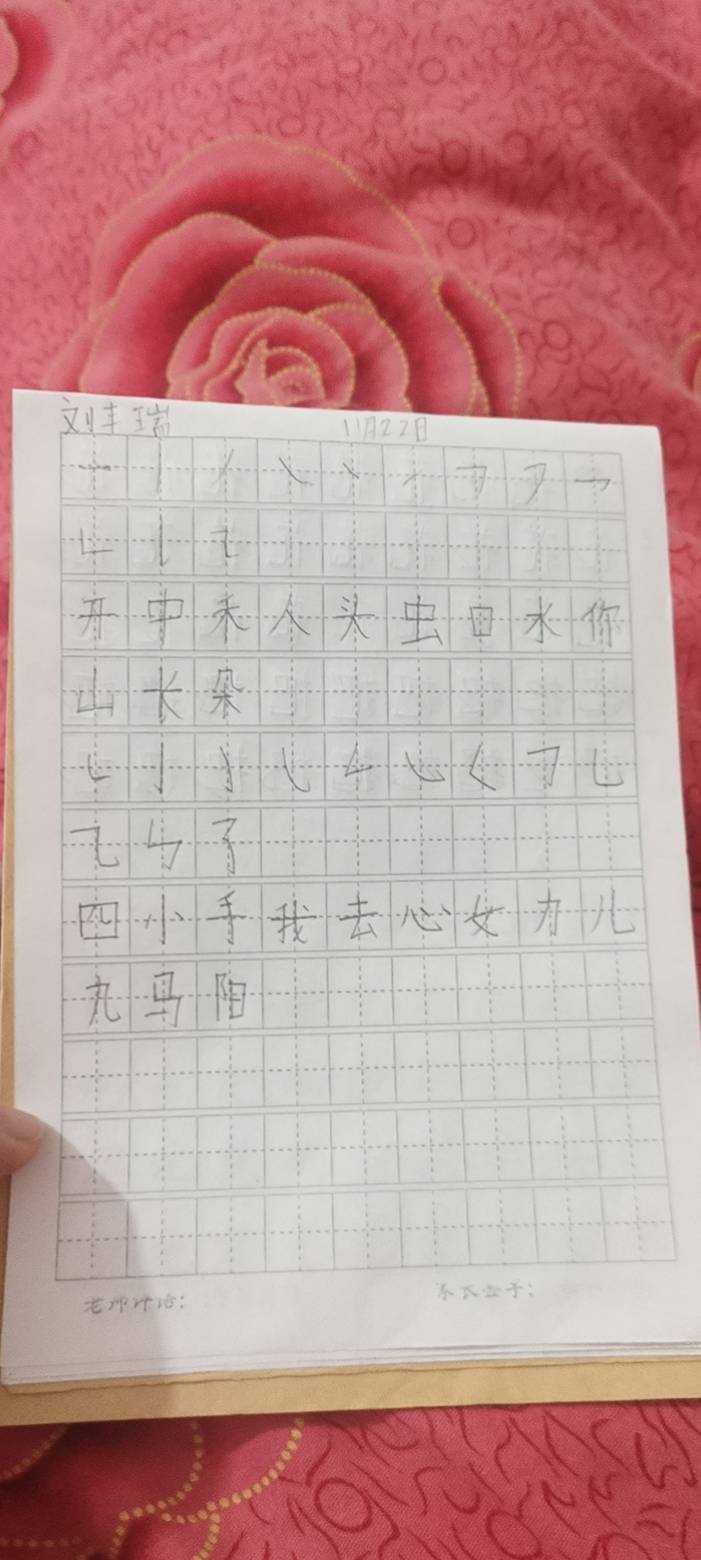 刘丰瑞 11月22日
一 丨 丿 ㇏ 丶 ㇀ ㇕ ㇇ 乛
𠃊 亅 ㇊
开 中 禾 人 头 虫 日 水 你
山 长 朵
𠃊 亅 ㇁ ㇂ 𠃋 ㇃ ㇛ 𠃌 乚
⺄ ㇉ ㇌
四 小 手 我 去 心 女 力 儿
九 马 阳
老师评语： 家长签字：